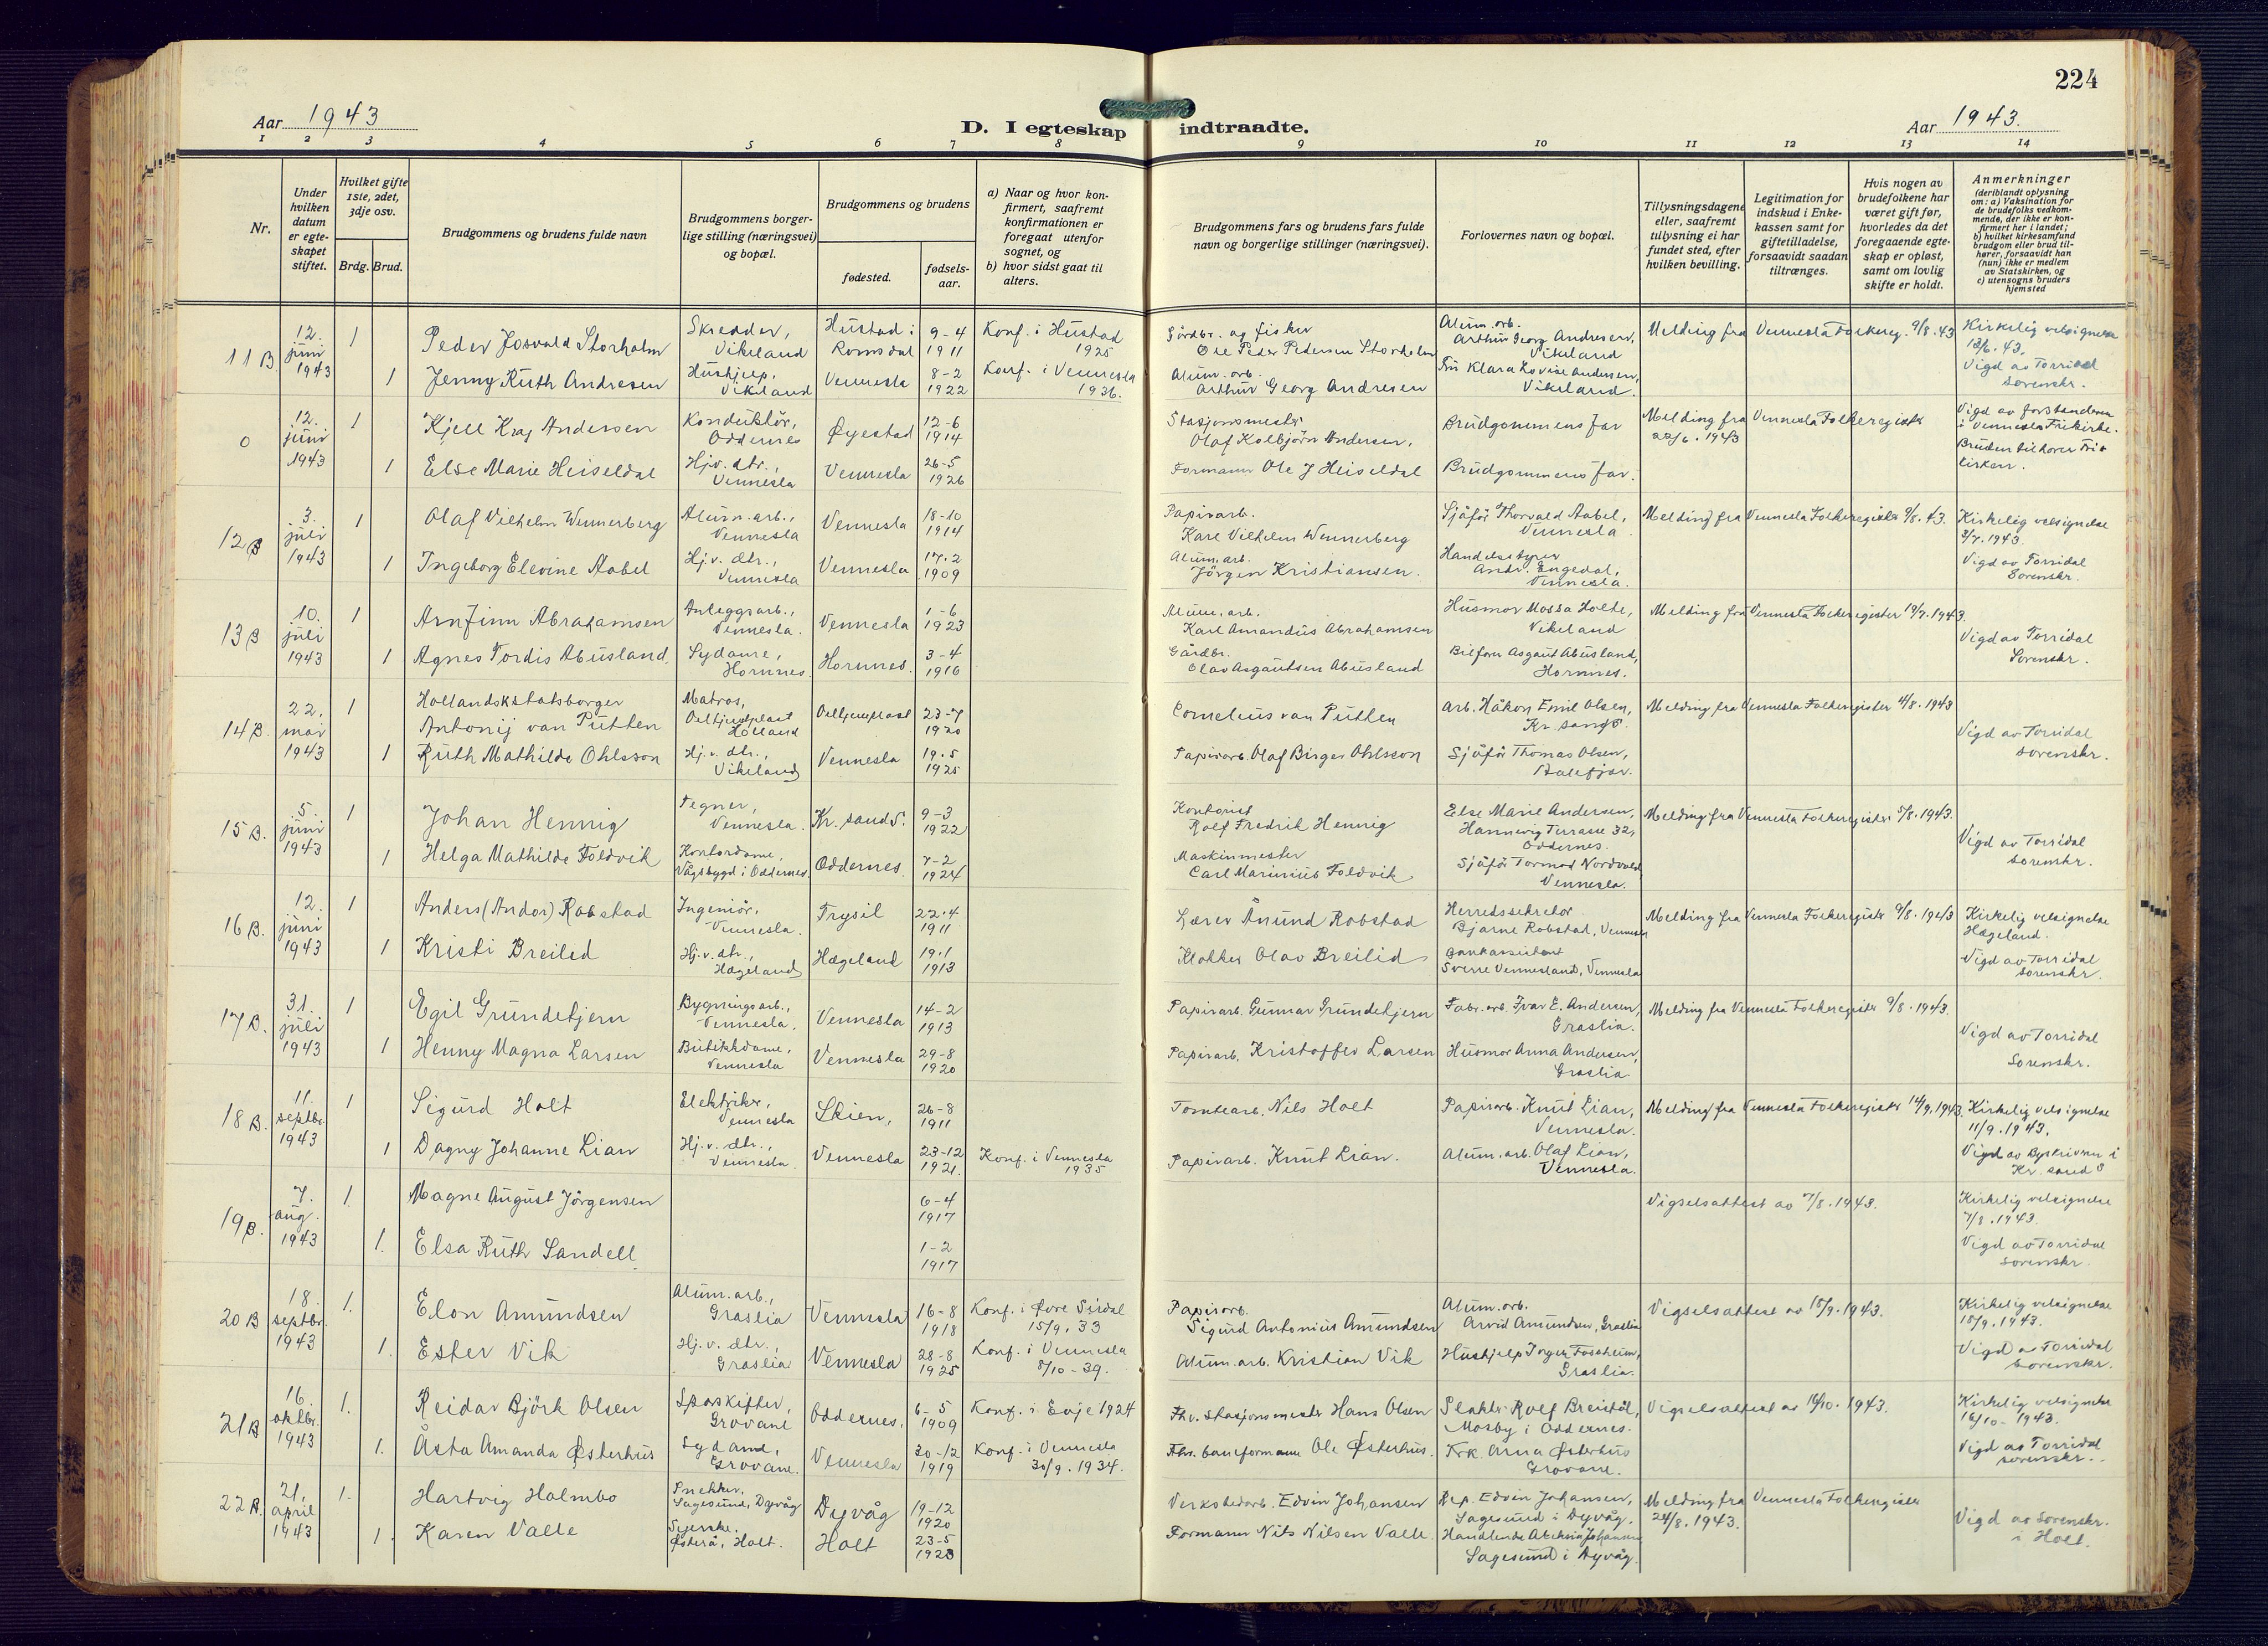 224
Aar 1943
D. I egteskap indtraadte.
Aar 1943.
1 2 3 4 5 6 7 8 9 10 11 12 13 14
Nr.
Under hvilken datum er egteskapet stiftet.
Hvilket gifte 1ste, 2det, 3dje osv.
Brdg. Brud.
Brudgommens og brudens fulde navn
Brudgommens borgerlige stilling (næringsvei) og bopæl.
Brudgommens og brudens
fødested.
fødselsaar.
a) Naar og hvor konfirmert, saafremt konfirmationen er foregaat utenfor sognet, og
b) hvor sidst gaat til alters.
Brudgommens fars og brudens fars fulde navn og borgerlige stillinger (næringsvei).
Forlovernes navn og bopæl.
Tillysningsdagene eller, saafremt tillysning ei har fundet sted, efter hvilken bevilling.
Legitimation for indskud i Enkekassen samt for giftetilladelse, forsaavidt saadan tiltrænges.
Hvis nogen av brudefolkene har været gift før, hvorledes da det foregaaende egteskap er opløst, samt om lovlig skifte er holdt.
Anmerkninger
(deriblandt oplysning om: a) Vaksination for de brudefolks vedkommende, der ikke er konfirmert her i landet; b) hvilket kirkesamfund brudgom eller brud tilhører, forsaavidt han (hun) ikke er medlem av Statskirken, og c) utensogns bruders hjemsted
11 B. 12. juni 1943 1 Peder Josvald Storholm Skredder, Vikeland Hustad i Romsdal 9-4 1911 Konf. i Hustad 1925 Gårdbr. og fisker Ole Peder Pedersen Storholm Alum. arb. Arthur Georg Andresen, Vikeland Melding fra Vennesla Folkereg. 9/8. 43 Kirkelig velsignelse 12/6. 43. Vigd av Torridal sorenskr.
1 Jenny Ruth Andresen Hushjelp, Vikeland Vennesla 8-2 1922 Konf. i Vennesla 1936. Alum. arb. Arthur Georg Andresen Fru Klara Lovise Andersen, Vikeland.
0 12. juni 1943 1 Kjell Kraj Andersen Konduktör, Oddernes Øyestad 12-6 1914 Stasjonsmester Olaf Kolbjörn Andersen. Brudgommens far Melding fra Vennesla Folkeregister 22/6. 1943 Vigd av forstanderen i Vennesla Frikirke. Bruden tilhører Frikirken.
1 Else Marie Heiseldal Hj.v. dtr., Vennesla Vennesla 26-5 1926 Formann Ole J Heiseldal Brudgommens far.
12 B 3. juli 1943 1 Olaf Vilhelm Wennerberg Alum. arb., Vennesla Vennesla 18-10 1914 Papirarb. Karl Vilhelm Wennerberg Sjåför Thorvald Aabel, Vennesla Melding fra Vennesla Folkeregister 9/8. 43. Kirkelig velsignelse 3/7. 1943. Vigd av Torridal Sorenskr.
1 Ingeborg Elevine Aabel Hj.v. dtr., Vennesla Vennesla 17-2 1909 Alum. arb. Jörgen Kristiansen. Handelsstyrer Andr. Engedal, Vennesla.
13 B 10. juli 1943 1 Arnfinn Abrahamsen Anleggsarb., Vennesla. Vennesla 1-6 1923 Alum. arb. Karl Amandus Abrahamsen Husmor Mossa Holte, Vikeland Melding fra Vennesla Folkeregister 19/7. 1943. Vigd av Torridal Sorenskr.
1 Agnes Tordis Abusland. Sydame, Hornnes. Hornnes. 3-4 1916 Gårdbr. Olav Asgautsen Abusland Bilfører Asgaut Abusland, Hornnes.
14 B. 22. mai 1943 1 Hollandsk statsborger Antonij van Putten Matros, Delfjzulplast Holland 23-7 1920 Cornelius van Putten Arb. Håkon Emil Olsen, Kr. sand S. Melding fra Vennesla Folkeregister 4/8. 1943 Vigd av Torridal sorenskr.
1 Ruth Mathilde Ohlsson Hj.v. dtr., Vikeland Vennesla 19-5 1925 Papirarb. Olaf Birger Ohlsson Sjåför Thomas Olsen, Ålefjær.
15 B. 5. juni 1943 1 Johan Hennig Tegner, Vennesla. Kr. sand S. 9-3 1922 Kontorist Rolf Fredrik Hennig Else Marie Andersen, Hannevig Terrasse 32, Oddernes. Melding fra Vennesla Folkeregister 5/8. 1943. Vigd av Torridal sorenskr.
1 Helga Mathilde Foldvik Kontordame, Vågsbygd i Oddernes. Oddernes. 7-2 1924 Maskinmester Carl Marinius Foldvik Sjåför Tormod Nordvold Vennesla.
16 B. 12. juni 1943 1 Anders (Andor) Robstad Ingeniör, Vennesla. Trysil 22-4 1911 Lærer Ånund Robstad Herredssekretær Bjarne Robstad, Vennesla Melding fra Vennesla Folkeregister 9/8. 1943 Kirkelig velsignelse Hægeland. Vigd av Torridal sorenskr.
1 Kristi Breilid Hj.v. dtr., Hægeland Hægeland 19-1 1913 Klokker Olav Breilid Bankassistent Sverre Vennesland, Vennesla
17 B. 31. juli 1943 1 Egil Grundetjern Bygningsarb., Vennesla. Vennesla 14-2 1913 Papirarb. Gunnar Grundetjern Fabr. arb. Ivar E. Andersen, Graslia. Melding fra Vennesla Folkeregister 9/8. 1943. Vigd av Torridal Sorenskr.
1 Henny Magna Larsen Butikkdame, Vennesla Vennesla 29-8 1920 Papirarb. Kristoffer Larsen Husmor Anna Andersen, Graslia.
18 B. 11. septbr. 1943 1 Sigurd Holt Elektriker, Vennesla Skien, 26-8 1911 Tomtearb. Nils Holt Papirarb. Knut Lian, Vennesla. Melding fra Vennesla Folkeregister 14/9. 1943. Kirkelig velsignelse 11/9. 1943. Vigd av Byskriveren i Kr. sand S
1 Dagny Johanne Lian Hj.v. dtr., Vennesla. Vennesla 23-12 1921. Konf. i Vennesla 1935 Papirarb. Knut Lian. Alum. arb. Olaf Lian, Vennesla.
19 B. 7. aug. 1943 1. Magne August Jörgensen 6-4 1917 Vigselsattest av 7/8. 1943. Kirkelig velsignelse 7/8. 1943. Vigd av Torridal sorenskr.
1. Elsa Ruth Sandell 1-2 1917
20 B 18. septbr. 1943 1. Elon Amundsen Alum. arb., Graslia Vennesla 16-8 1918 Konf. i Øvre Sirdal 15/9. 33 Papirarb. Sigurd Antonius Amundsen Alum. arb. Arvid Amundsen, Graslia Vigselsattest av 18/9. 1943. Kirkelig velsignelse 18/9. 1943. Vigd a Torridal sorenskr.
1. Ester Vik Hj.v. dtr., Graslia Vennesla 28-8 1925 Konf. i Vennesla 8/10-39. Alum. arb. Kristian Vik Hushjelp Fossheim, Graslia.
21 B 16. oktbr. 1943 1. Reidar Björk Olsen Sporskifter, Grovane Oddernes. 6-5 1909 Konf. i Evje 1924 Fhv. stasjonsmester Hans Olsen Slakter Rolf Breistöl, Mosby i Oddernes. Vigselsattest av 16/10. 1943. Kirkelig velsignelse 16/10-1943. Vigd av Torridal sorenskr.
1. Åsta Amanda Østerhus Sydame, Grovane. Vennesla 20-12 1919 Konf. i Vennesla 30/9. 1934. Fhv. baneformann Ole Østerhus. Frk. Anna Østerhus Grovane.
22 B. 21. april 1943 1. Hartvig Holmbo Snekker, Sagesund, Dyvåg Dyvåg 19-12 1920 Verkstedarb. Edvin Johansen Rep. Edvin Johansen, Sagesund i Dyvåg. Melding fra Vennesla Folkeregister 24/8. 1943. Vigd av Sorenskr. i Holt.
1. Karen Valle Syerske. Østerå, Holt. Holt 23-5 1923 Formann Nils Nilsen Valle. Handlende Johansen Sagesund i Dyvåg.